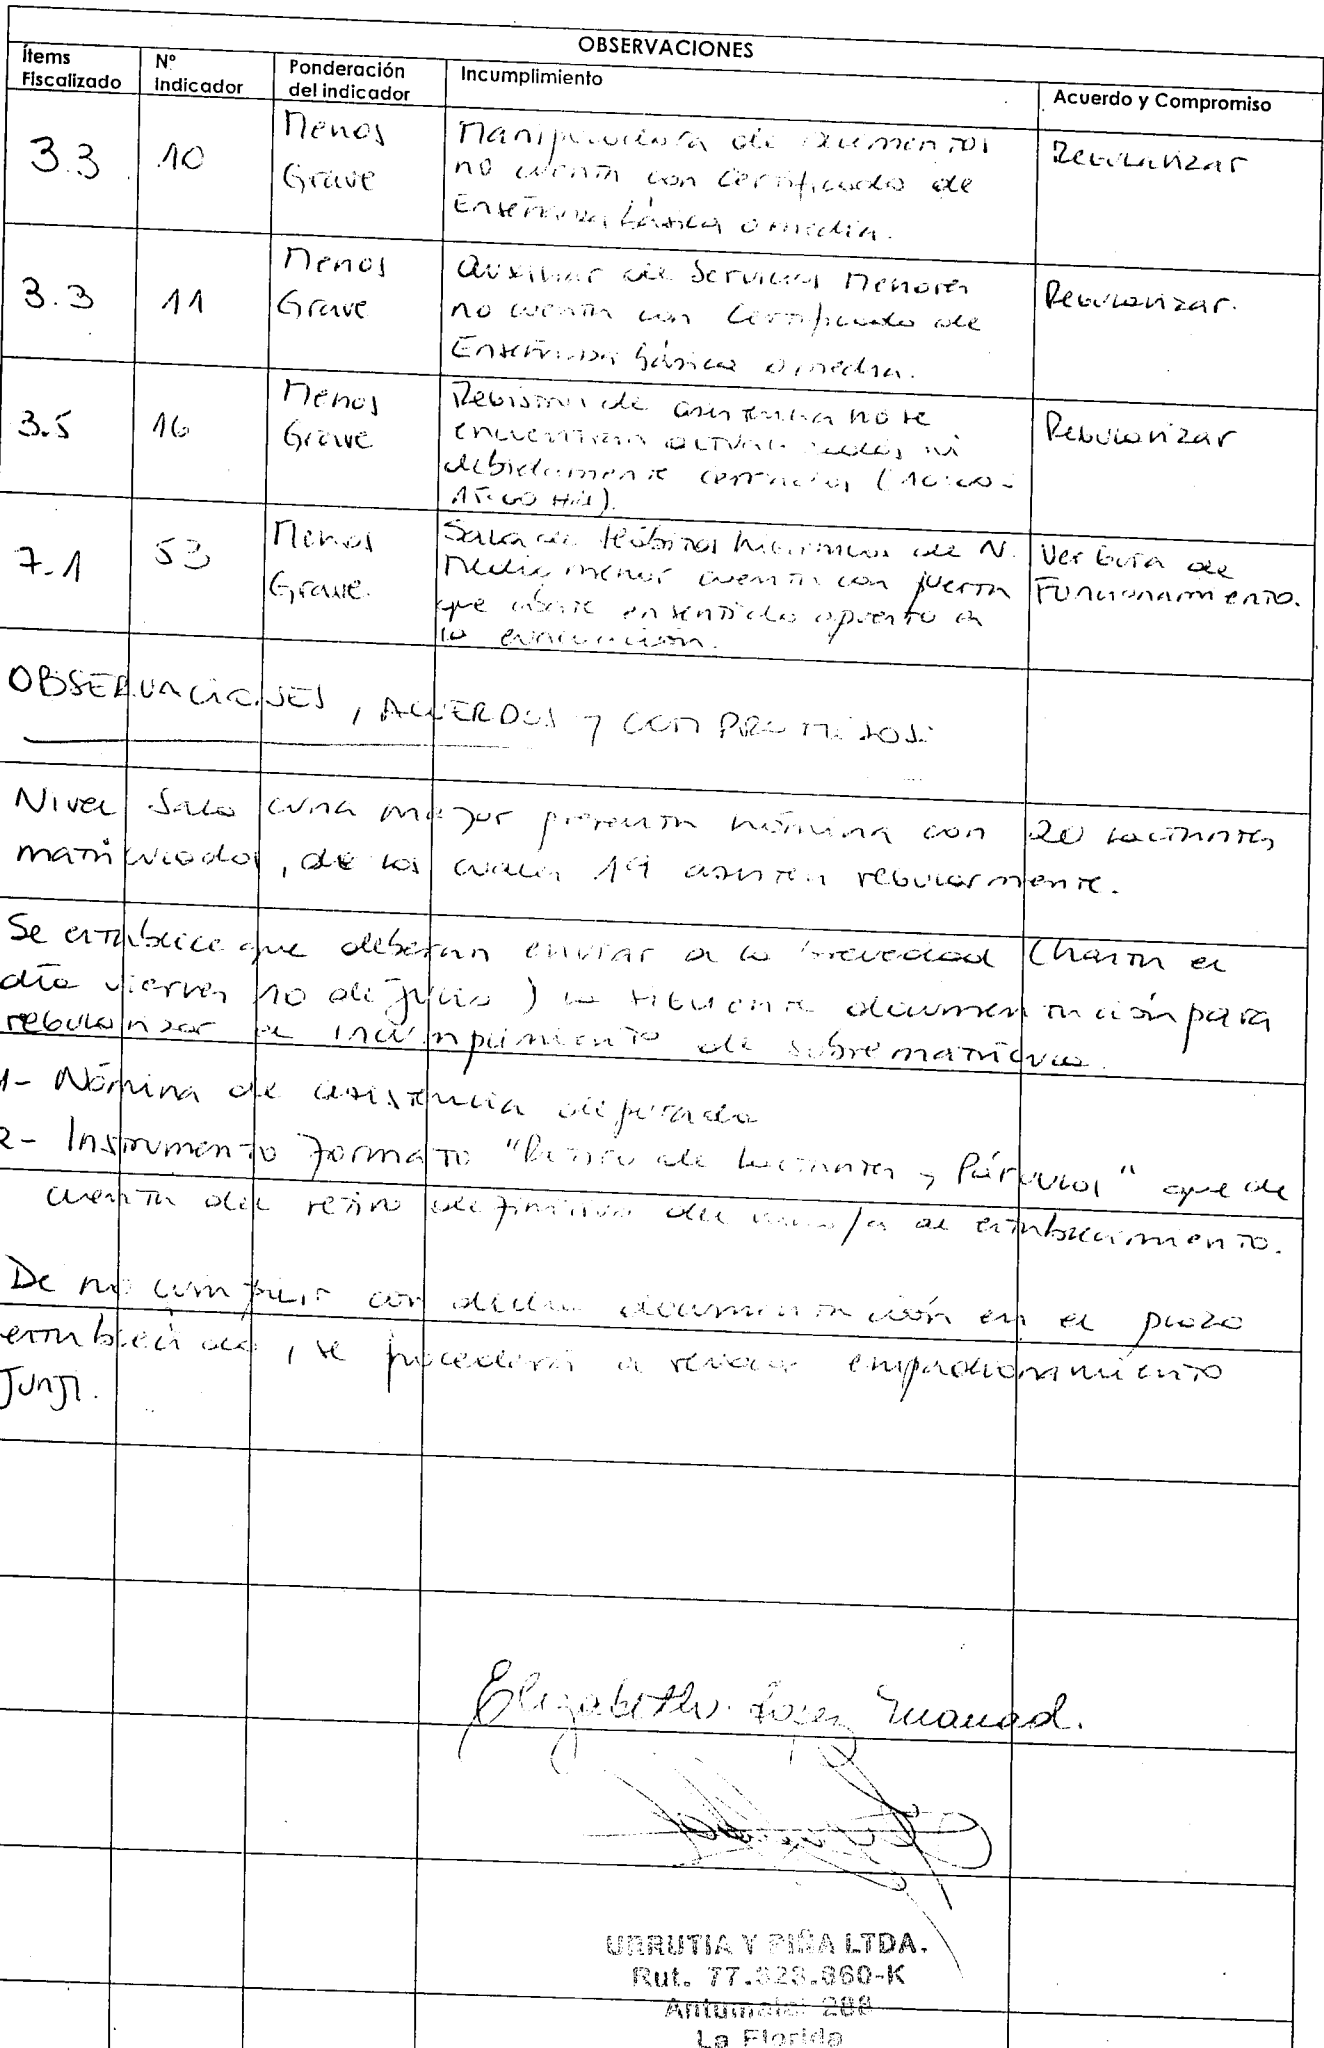 OBSERVACIONES
Ítems Fiscalizado
Nº Indicador
Ponderación del indicador
Incumplimiento
Acuerdo y Compromiso
3.3
10
Menos
Grave
Manipuladora de alimentos
no cuenta con certificado de
Enseñanza básica o media.
Regularizar
3.3
11
Menos
Grave
Auxiliar de Servicios Menores
no cuenta con Certificado de
Enseñanza básica o media.
Regularizar.
3.5
16
Menos
Grave
Registros de asistencia no se
encuentran actualizados ni
debidamente cerrados (10:00 -
15:00 Hrs).
Regularizar
7.1
53
Menos
Grave.
Sala de Hábitos higiénicos de N.
Medio menor cuenta con puerta
que abate en sentido opuesto a
la evacuación.
Ver Guía de
Funcionamiento.
OBSERVACIONES, ACUERDOS y COMPROMISOS:
Nivel Sala cuna mayor presenta nómina con 20 lactantes
matriculados, de los cuales 19 asisten regularmente.
Se establece que deberán enviar a la brevedad (hasta el
día viernes 10 de Julio) la siguiente documentación para
regularizar el incumplimiento de sobrematrícula.
1- Nómina de asistencia depurada
2- Instrumento Formato "Retiro de Lactantes y Párvulos" que de
cuenta del retiro definitivo del niño/a al establecimiento.
De no cumplir con dicha documentación en el plazo
establecido, se procederá a revocar empadronamiento
JUNJI.
Elizabeth
URRUTIA Y PIÑA LTDA.
Rut. 77.
Antumalal 288
La Florida